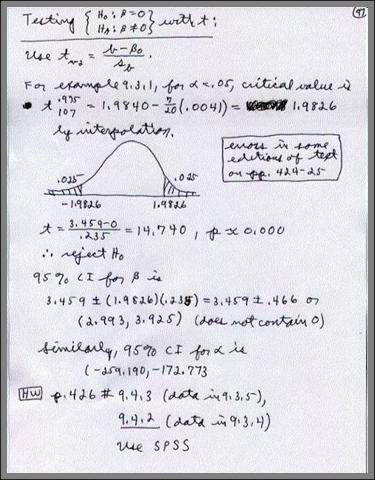 (97)
Testing { H₀: β=0
Hₐ: β≠0 } with t:
Use t_{n-2} = (b - β₀) / s_b .
For example 9.3.1, for α=.05, critical value is
t^{.975}_{107} = 1.9840 - 7/20 (.0041) = 1.9826
by interpolation.
errors in some
editions of text
on pp. 424-25
.025 .025
-1.9826 1.9826
t = (3.459-0) / .235 = 14.740 , p ≈ 0.000
∴ reject H₀
95% CI for β is
3.459 ± (1.9826)(.235) = 3.459 ± .466 or
(2.993, 3.925) (does not contain 0)
Similarly, 95% CI for α is
(-259.190, -172.773
HW p. 426 # 9.4.3 (data in 9.3.5),
9.4.2 (data in 9.3.4)
Use SPSS